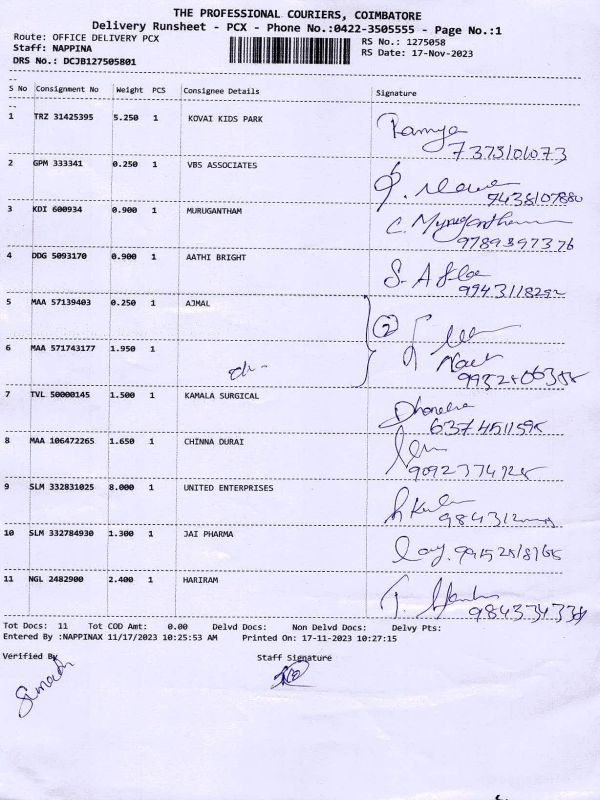 THE PROFESSIONAL COURIERS, COIMBATORE
Delivery Runsheet - PCX - Phone No.:0422-3505555 - Page No.:1
Route: OFFICE DELIVERY PCX RS No.: 1275058
Staff: NAPPINA RS Date: 17-Nov-2023
DRS No.: DCJB127505801
S No Consignment No Weight PCS Consignee Details Signature
1 TRZ 31425395 5.250 1 KOVAI KIDS PARK Ramya
7373101073
2 GPM 333341 0.250 1 VBS ASSOCIATES
7438107880
3 KDI 600934 0.900 1 MURUGANTHAM C. Murugantham
9789397376
4 DDG 5093170 0.900 1 AATHI BRIGHT
9943118292
5 MAA 57139403 0.250 1 AJMAL 2
6 MAA 571743177 1.950 1
7 TVL 50000145 1.500 1 KAMALA SURGICAL
6374511595
8 MAA 106472265 1.650 1 CHINNA DURAI
9 SLM 332831025 8.000 1 UNITED ENTERPRISES
10 SLM 332784930 1.300 1 JAI PHARMA
11 NGL 2482900 2.400 1 HARIRAM
Tot Docs: 11 Tot COD Amt: 0.00 Delvd Docs: Non Delvd Docs: Delvy Pts:
Entered By :NAPPINAX 11/17/2023 10:25:53 AM Printed On: 17-11-2023 10:27:15
Verified By Staff Signature